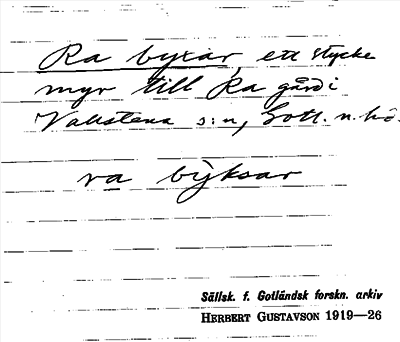 Ra byxar, ett stycke
myr till Ra gård i
Vallstena s:n, Gotl. n. hä.
ra byksar
Sällsk. f. Gotländsk forskn. arkiv
HERBERT GUSTAVSON 1919—26